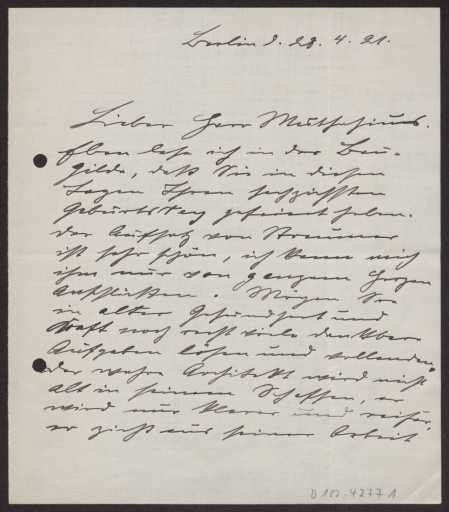 Berlin d. 28. 4. 21.
Lieber Herr Muthesius.
Eben lese ich in der Bau-
gilde, daß Sie in diesen
Tagen Ihren sechzigsten
Geburtstag gefeiert haben.
Der Aufsatz von Straumer
ist sehr schön, ich kann mich
ihm nur von ganzem Herzen
anschließen. Mögen Sie
in alter Gesundheit und
Kraft noch recht viele dankbare
Aufgaben lösen und vollenden.
Der wahre Architekt wird nicht
alt in seinem Schaffen, er
wird nur klarer und reifer,
er zieht aus seiner Arbeit
D 102-4277 1